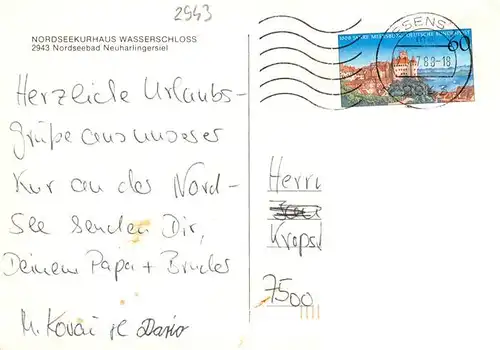 2943
NORDSEEKURHAUS WASSERSCHLOSS
2943 Nordseebad Neuharlingersiel
Herzliche Urlaubs-
grüße aus unserer
Kur an der Nord-
See senden Dir,
Deinem Papa + Bruder
M. Dario
1000 JAHRE MEERSBURG DEUTSCHE BUNDESPOST
60
ESENS
.7.88-18
2943
Herrn
7500